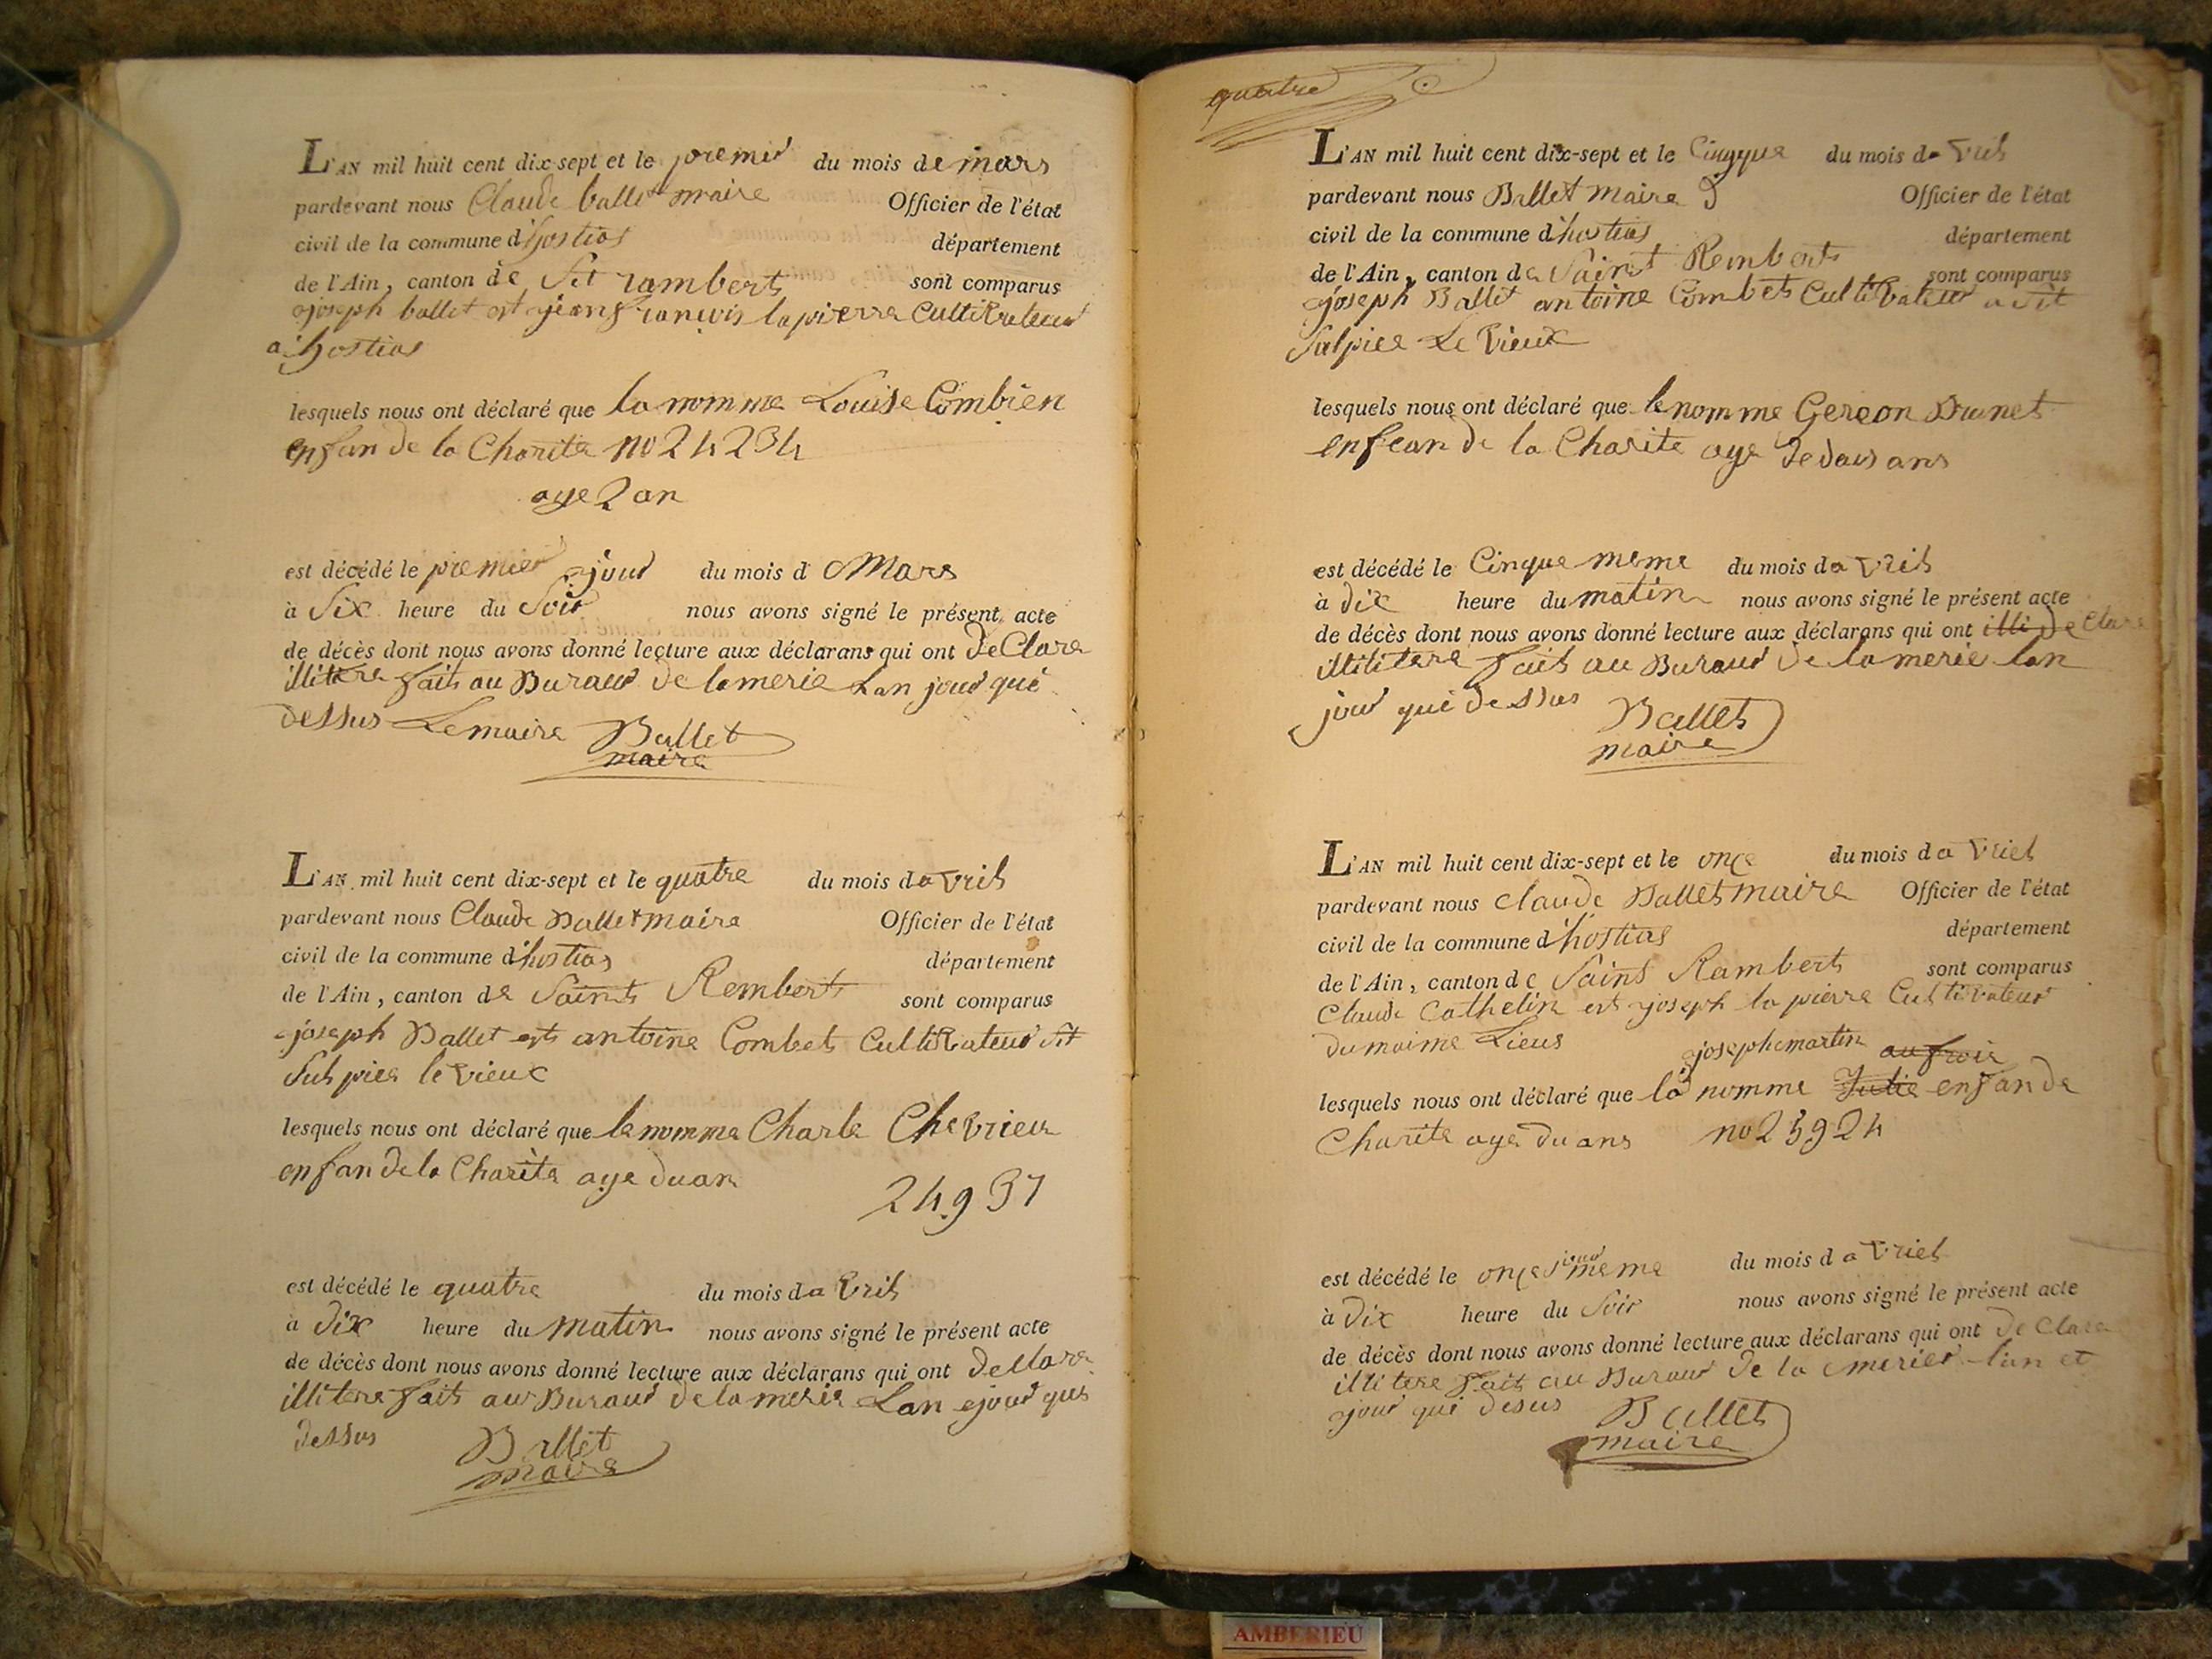 L'AN mil huit cent dix-sept et le premier du mois de mars
pardevant nous Claude ballet maire Officier de l'état
civil de la commune d'hostias département
de l'Ain, canton de St rambert sont comparus
joseph ballet et jean francois lapierre Cultivateur
a hostias
lesquels nous ont déclaré que la nomme Louise Combien
enfan de la Charite no 24234
age 2 an
est décédé le premier jour du mois d Mars
à Six heure du Soir nous avons signé le présent acte
de décès dont nous avons donné lecture aux déclarans qui ont de Clare
illitere fait au Buraud de la merie Lan jour qui
dessus Le maire Ballet
maire
L'AN mil huit cent dix-sept et le quatre du mois da vril
pardevant nous Claude Ballet maire Officier de l'état
civil de la commune d'hostias département
de l'Ain, canton de Saint Rembert sont comparus
joseph Ballet et antoine Combet Cultivateur St
Sulpice le vieux
lesquels nous ont déclaré que le nomme Charle Chevrieu
enfan de la Charite age du an
24937
est décédé le quatre du mois da vril
à dix heure du matin nous avons signé le présent acte
de décès dont nous avons donné lecture aux déclarans qui ont de Clare
illitere fait au Buraud de la merie Lan jour qui
dessus Ballet
maire
quatre
L'AN mil huit cent dix-sept et le Cinqque du mois da vril
pardevant nous Ballet maire Officier de l'état
civil de la commune d'hostias département
de l'Ain, canton de Saint Rembert sont comparus
joseph Ballet antoine Combet Cultivateur a St
Sulpice Le vieux
lesquels nous ont déclaré que le nomme Gereon Brunet
enfean de la Charite age de dous ans
est décédé le Cinque meme du mois da vril
à dix heure du matin nous avons signé le présent acte
de décès dont nous avons donné lecture aux déclarans qui ont illi de Clare
illilitere fait au Buraud de la merie lan
jour qui dessus Ballet
maire
L'AN mil huit cent dix-sept et le onze du mois d a vriel
pardevant nous claude Ballet maire Officier de l'état
civil de la commune d'hostias département
de l'Ain, canton de Saint Rambert sont comparus
Claude Cathelin et joseph la pierre Cultivateur
du maime Lieus josephe martin
lesquels nous ont déclaré que la nomme Julie enfan de
Charite age du ans no 25924
est décédé le onze jour meme du mois d a vriel
à dix heure du Soir nous avons signé le présent acte
de décès dont nous avons donné lecture aux déclarans qui ont de Clare
illitere fait au Buraud de la merier lan et
jour qui desus Ballet
maire
AMBERIEU